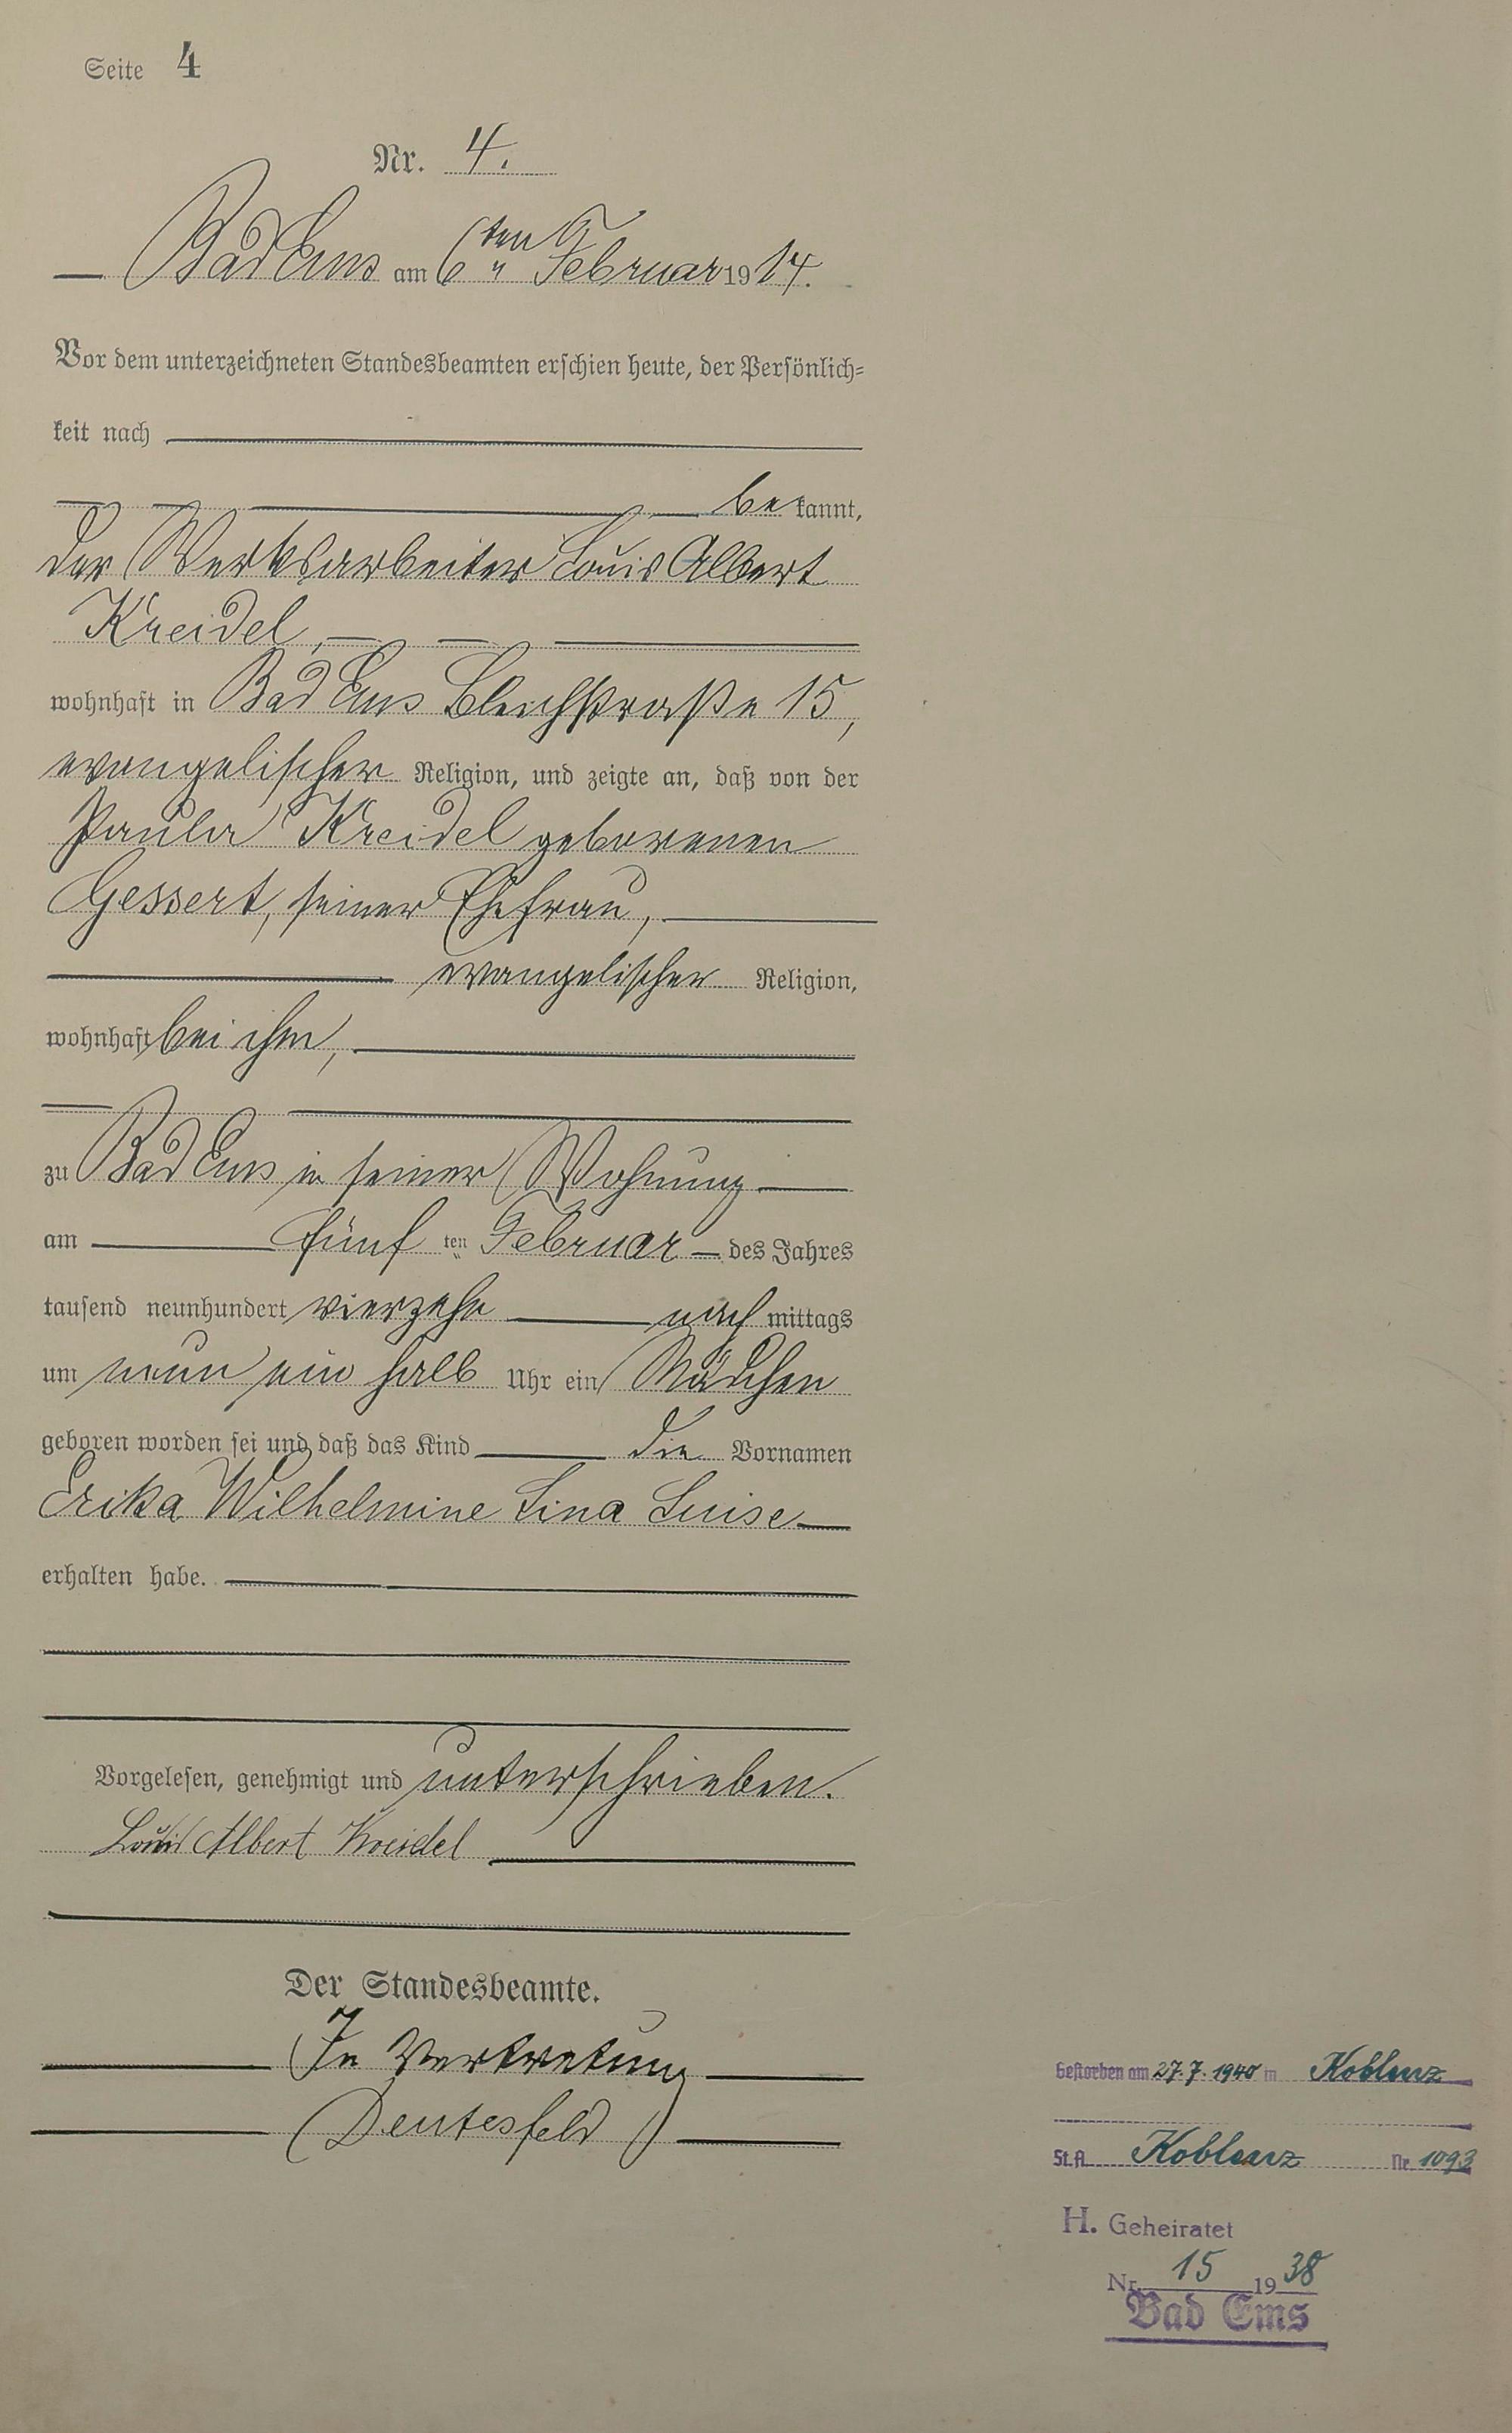 Seite 4
Nr. 4.
Bad Ems am 6ten Februar 1914.
Vor dem unterzeichneten Standesbeamten erschien heute, der Persönlich=
keit nach
bekannt,
der Werksarbeiter Louis Albert
Kreidel,
wohnhaft in Bad Ems Bleichstraße 15,
evangelischer Religion, und zeigte an, daß von der
Paula Kreidel geborenen
Gessert, seiner Ehefrau,
evangelischer Religion,
wohnhaft bei ihm,
zu Bad Ems in seiner Wohnung
am fünf ten Februar des Jahres
tausend neunhundert vierzehn nachmittags
um neun ein halb Uhr ein Mädchen
geboren worden sei und daß das Kind die Vornamen
Erika Wilhelmine Lina Luise
erhalten habe.
Vorgelesen, genehmigt und unterschrieben.
Louis Albert Kreidel
Der Standesbeamte.
In Vertretung
Deutesfeld
Gestorben am 27.7.1940 in Koblenz
St.A. Koblenz Nr. 1093
H. Geheiratet
Nr. 15 1938
Bad Ems